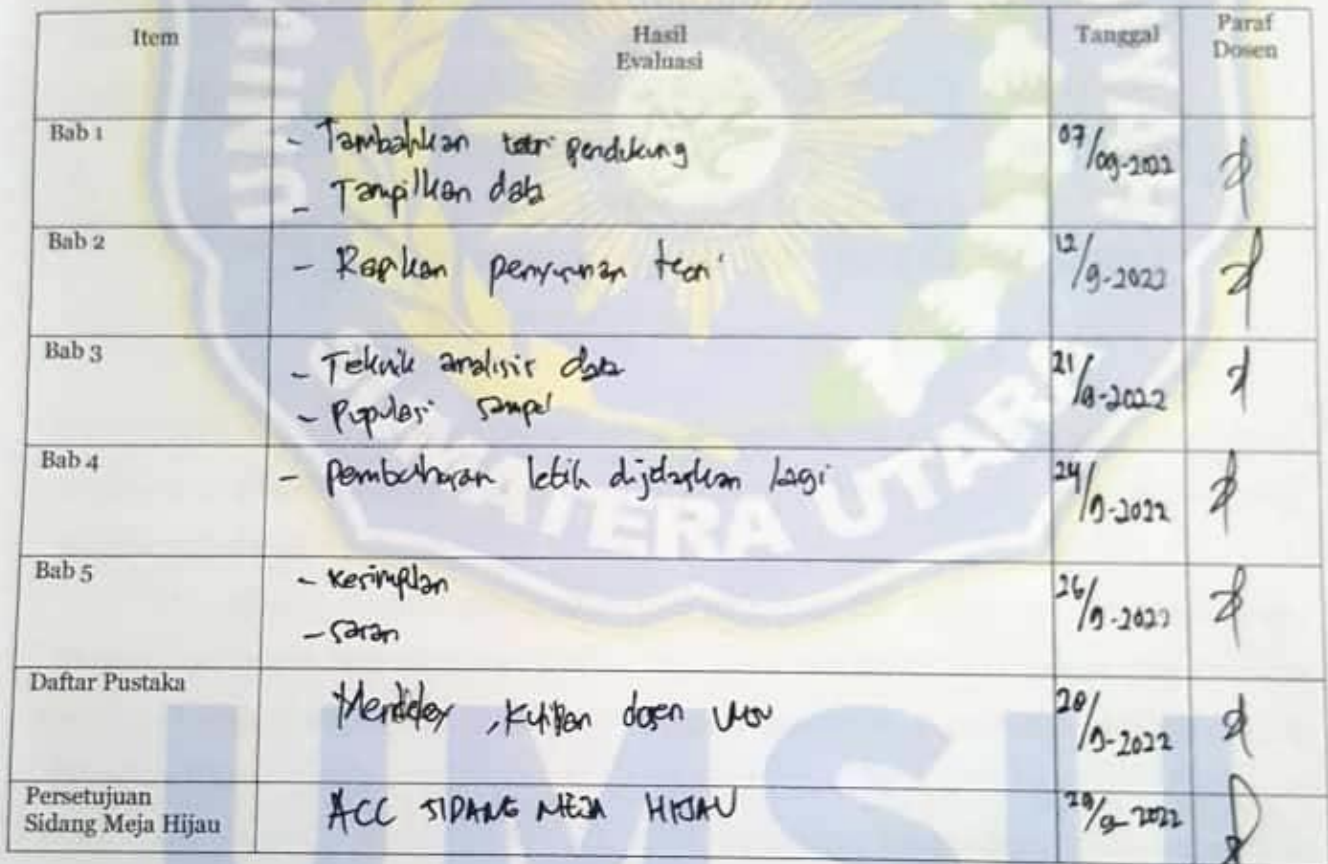 Item Hasil Evaluasi Tanggal Paraf Dosen
Bab 1 - Tambahkan teori pendukung 07/09-2022
- Tampilkan data
Bab 2 - Rapikan penyusunan teori 12/9-2022
Bab 3 - Teknik analisis data 21/9-2022
- Populasi sampel
Bab 4 - Pembahasan lebih dijelaskan lagi 24/9-2022
Bab 5 - Kesimpulan 26/9-2022
- Saran
Daftar Pustaka Mendeley, Kutipan dosen 28/9-2022
Persetujuan
Sidang Meja Hijau ACC SIDANG MEJA HIJAU 29/9-2022
SUMATERA UTARA
UMSU